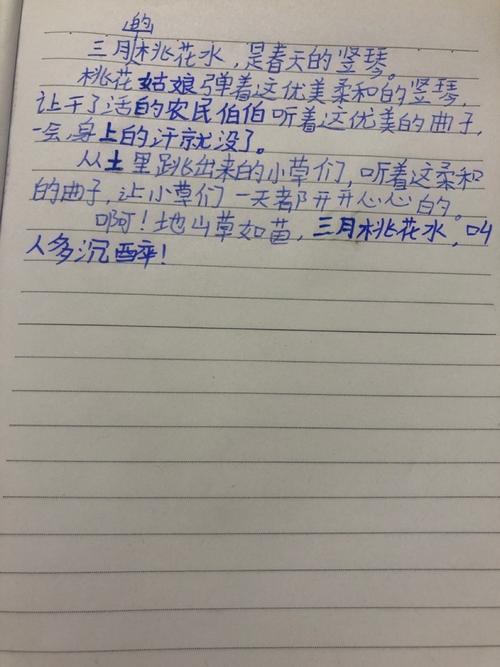 的
三月桃花水，是春天的竖琴。
桃花姑娘弹着这优美柔和的竖琴，
让干了活的农民伯伯听着这优美的曲子，
一会身上的汗就没了。
从土里跳出来的小草们，听着这柔和
的曲子，让小草们一天都开开心心的。
啊！地山草如苗，三月桃花水，叫
人多沉醉！